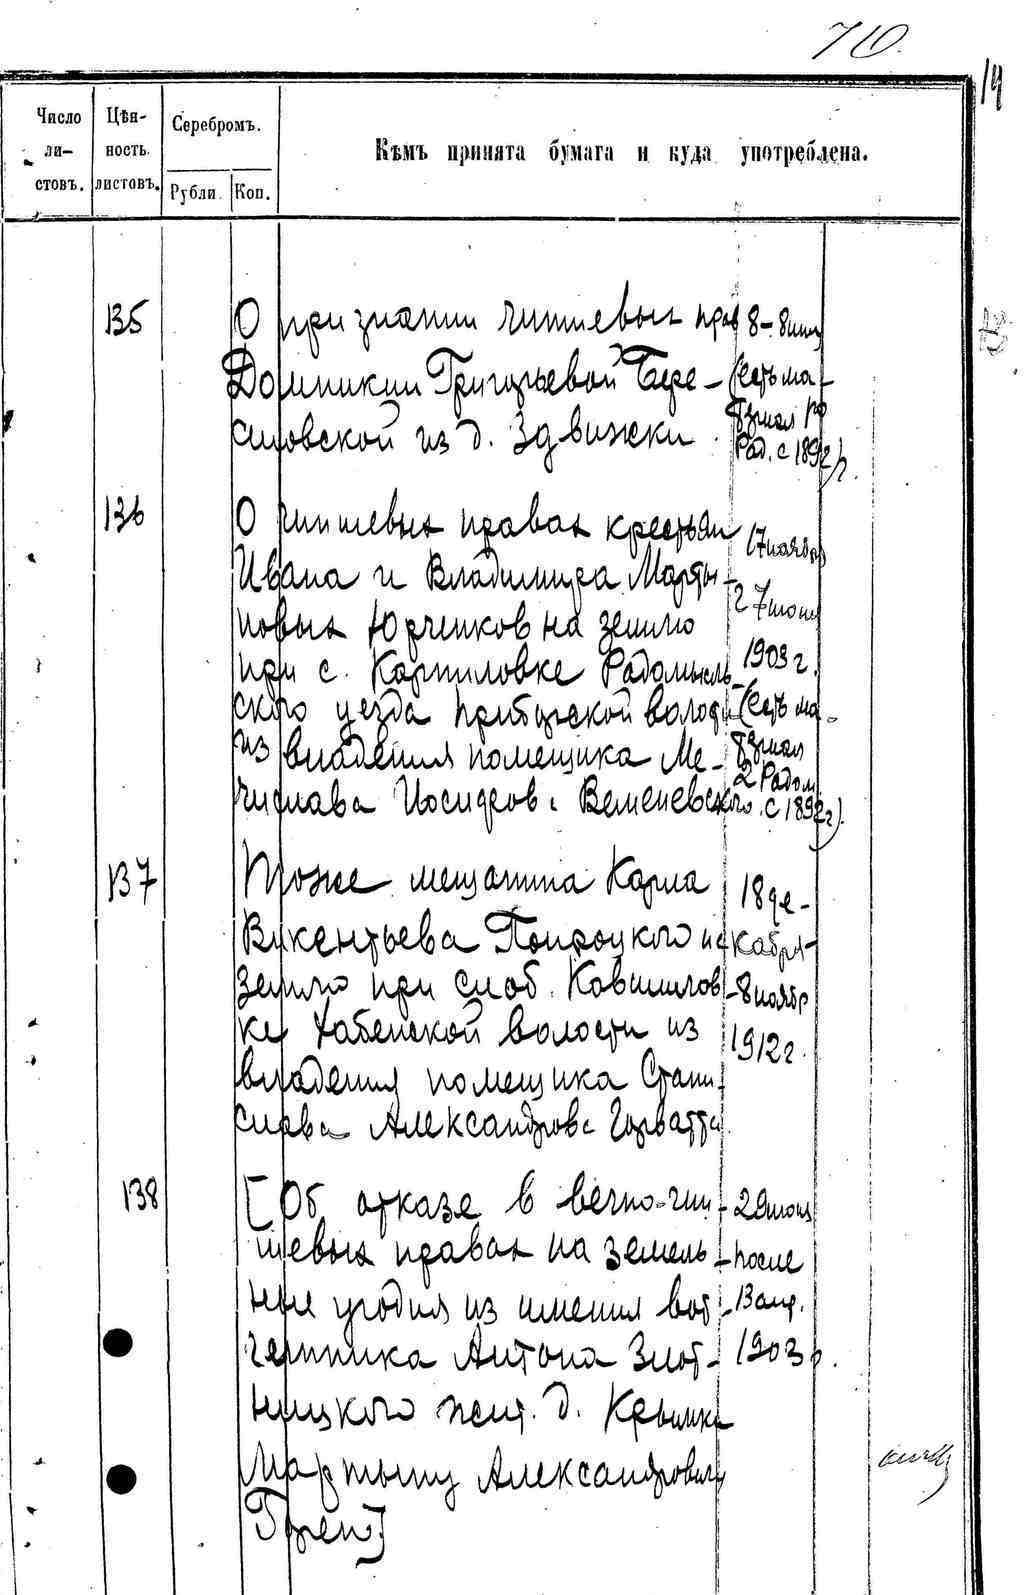 70.
14
Число листовъ.
Цѣнность листовъ.
Серебромъ.
Рубли.
Коп.
Кѣмъ принята бумага и куда употреблена.
135
О признании чиншевых прав
Домникии Григорьевой Бере-
стовской из д. Здвижки
8 -
(есть ма-
териал
Рад. с 1892 г.)
136
О чиншевых правах крестьян
Ивана и Владимира Марты-
новых Юрченков на землю
при с. Карпиловке Радомысль-
ского уезда Притырской волост.
из владения помещика Ме-
числава Иосифова
17 ноября
27 июня
1903 г.
(есть ма-
териал
2 Радом.
с 1892 г.)
137
Тоже мещанина Карла
Викентьева на
землю при слоб.
Хабенской волости из
владения помещика Стани-
слава Александрова Горватта
18 де-
кабря -
- 8 ноябр
1912 г.
138
[Об отказе в вечно-чин-
шевых правах на земель-
ные угодия из имения вот-
чинника Антона Злот-
ницкого жит. д. Крымка
Мартыну Александровичу
29 июня
- после
13 апр.
1903 г.